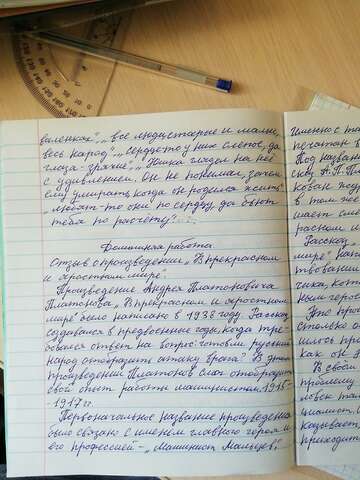 валенках", "все люди старые и малые,
весь народ", "сердце то у них слепое, да
глаза - зрячие", "Юшка глядел на неё
с удивлением. Он не понимал, зачем
ему умирать, когда он родился жить"
"любят-то они по сердцу, да бьют
тебя по расчёту".
Домашняя работа
Отзыв о произведение "В прекрасном
и яростном мире"
Произведение Андрея Платоновича
Платонова "В прекрасном и яростном
мире" было написано в 1938 году. Рассказ
создавался в предвоенные годы, когда тре-
бовался ответ на вопрос: готов ли русский
народ отобразить атаку врага? В этом
произведении Платонов смог отобразить
свой опыт работы машинистом. 1915-
-1917гг.
Первоначальное название произведения
было связано с именем главного героя и
его профессией - "Машинист Мальцев",
Именно с та
печатан в
Под назван
сказ А. П. Пл
кован под
в том же
шает сл
расном и
Рассказ
мире" напи
ствовани
ника, кот
ным геро
Это прои
столько
шлось пр
как он л
В своём
проблему
ловек тал
циалист,
казывает,
приходит